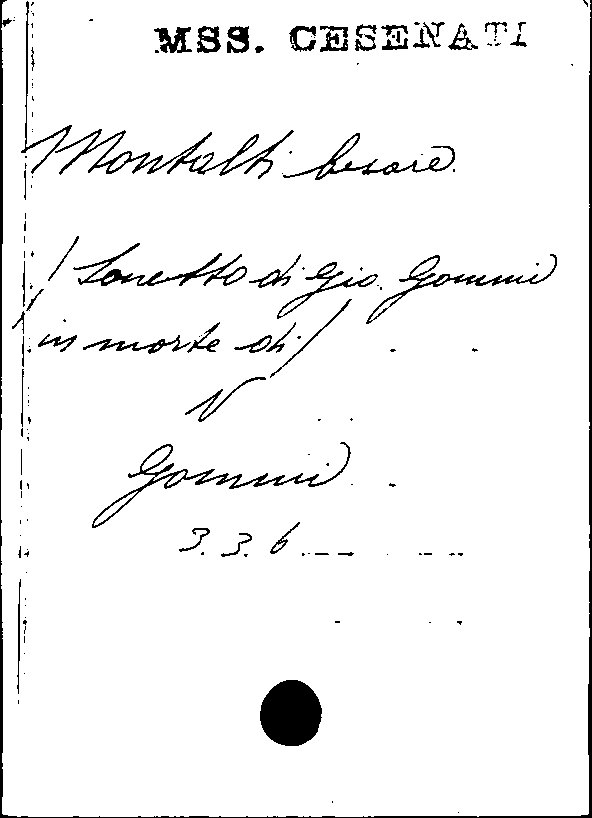 MSS. CESENATI
Montalti Cesare
/ Sonetto di Gio. Gommi
in morte di /
V
Gommi
3.3.6